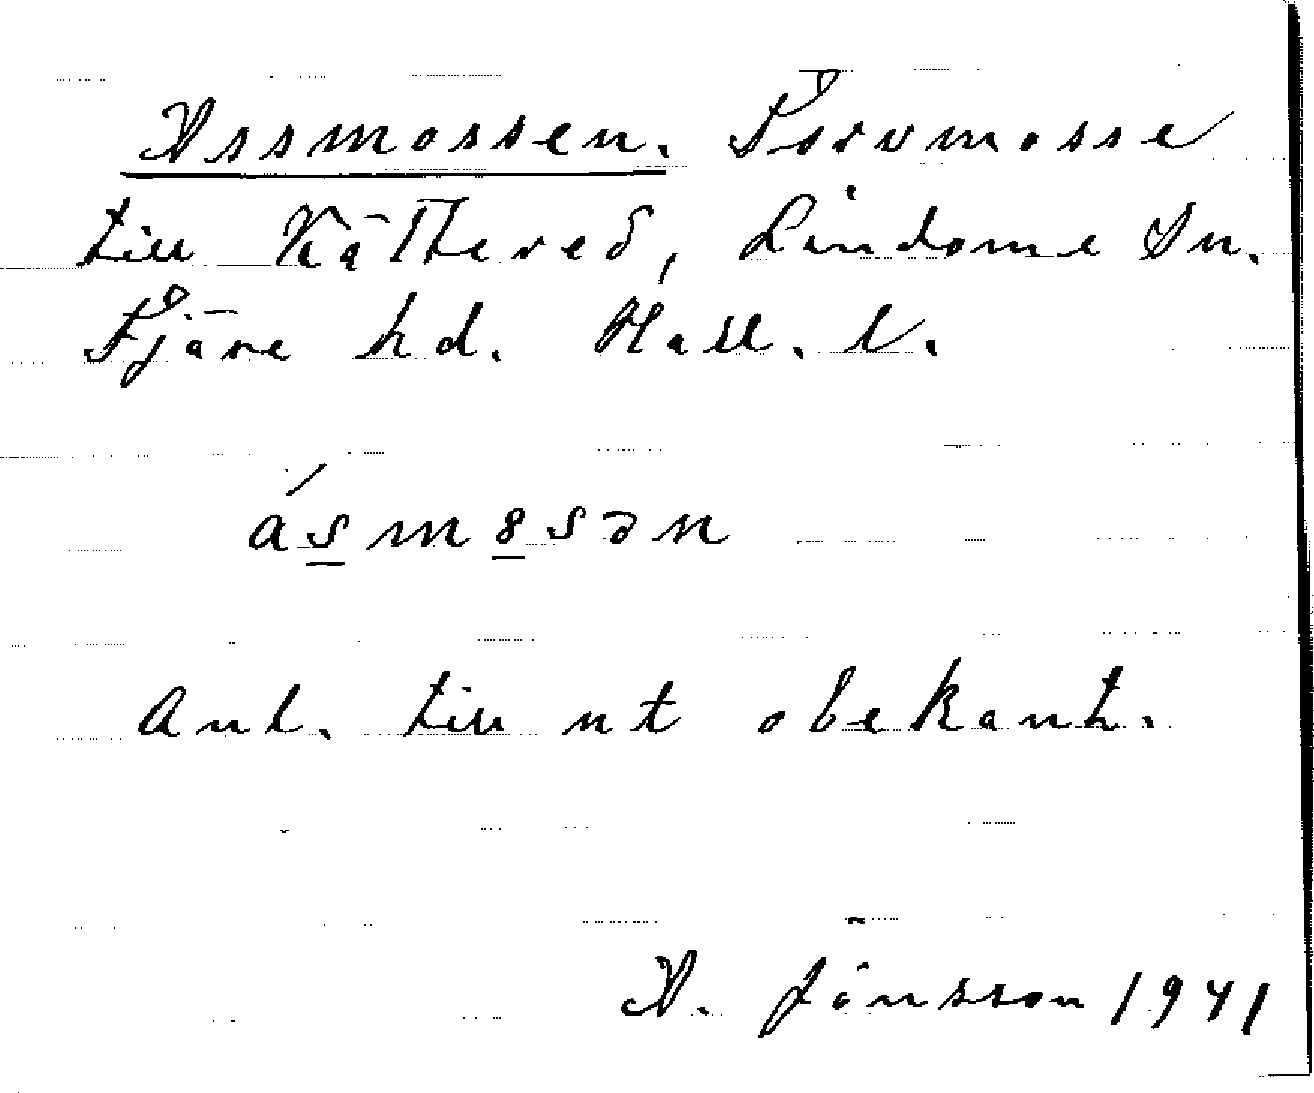 Assmossen. Torvmosse
till Kättered, Lindome Sn.
Fjäre hd. Hall. l.
ásmɞsən
Anl. till nt obekant.
A. Jönsson 1941